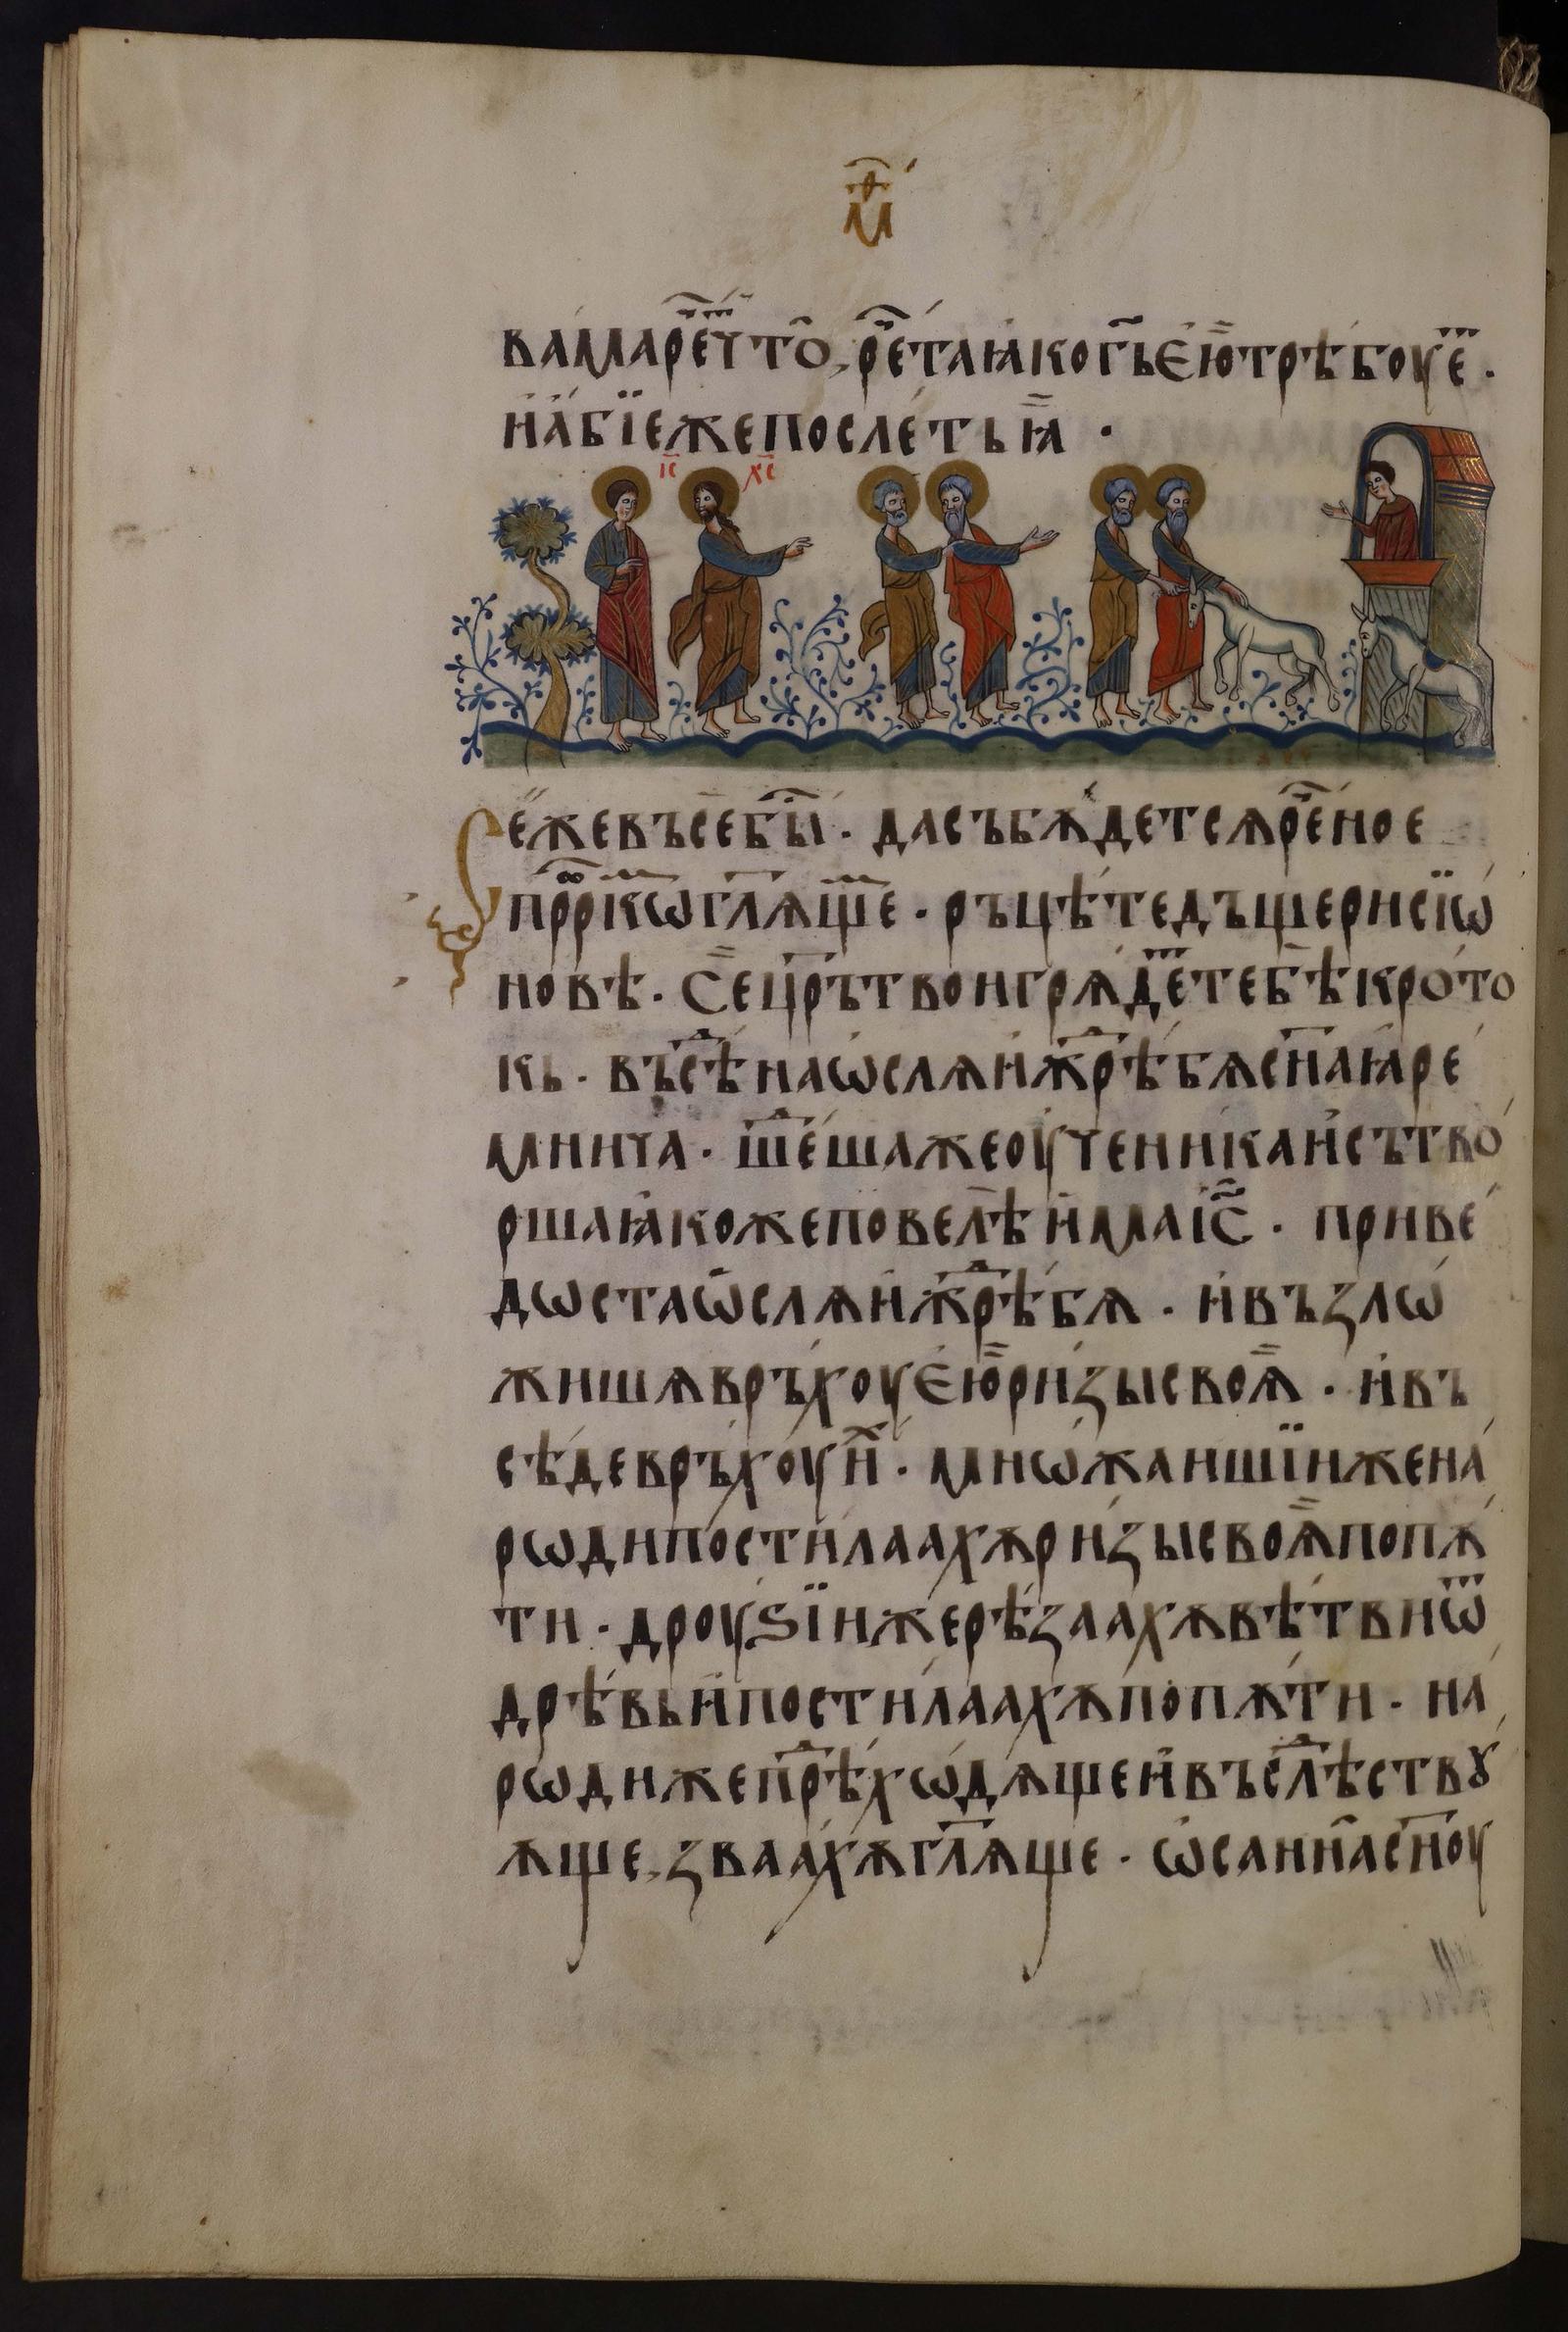 м҃ѳ
вамаре҃чтѡ, ре҃таꙗкогь҃еютрѣбоуе҃ .
на́бїежепосле́тьꙗ ·
іс хс
Сежевъсебы҃ . дасъбѫдетсѧре҃ное
про҃ркѡмгл҃ѧщеⷨ . ръцѣ́тедъщерисїѡ́
новѣ . Сец҃рътвоигрѧдеⷮтебѣкро́то
кь . въсѣⷣнаѡслѧижⷣрѣбѧсн҃аꙗре́
мнича . шеⷣшажеоученикаисътво́
ршаꙗкожеповелѣимаіс҃ . приве́
дѡстаѡслѧижⷣрѣбѧ . ивъзлѡ́
жишѧвръхоуеюри́зысвоѧ . ивъ
сѣ́девръхоуиⷯ . мнѡ́жаишїижена́
рѡдипости́лаахѫри́зысвоѧпопѫ́
ти . дроуѕїижерѣ́заахѫвѣ́твиѿ
дрѣ́вьипости́лаахѫпопѫ́ти . на́
рѡдижепрѣⷣхѡ́дѧщеивъслѣⷣствꙋ
ѫще, зваахѫгл҃ѧще . ѡсаннасн҃оу